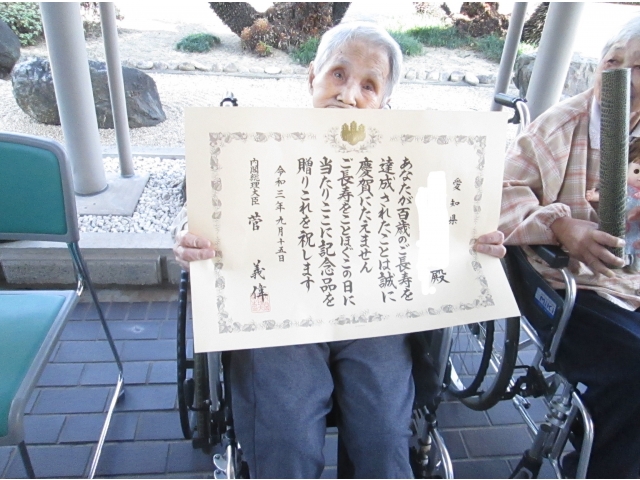 愛知県
殿
あなたが百歳のご長寿を
達成されたことは誠に
慶賀にたえません
ご長寿をことほぐこの日に
当たりここに記念品を
贈りこれを祝します
令和三年九月十五日
内閣総理大臣 菅 義偉